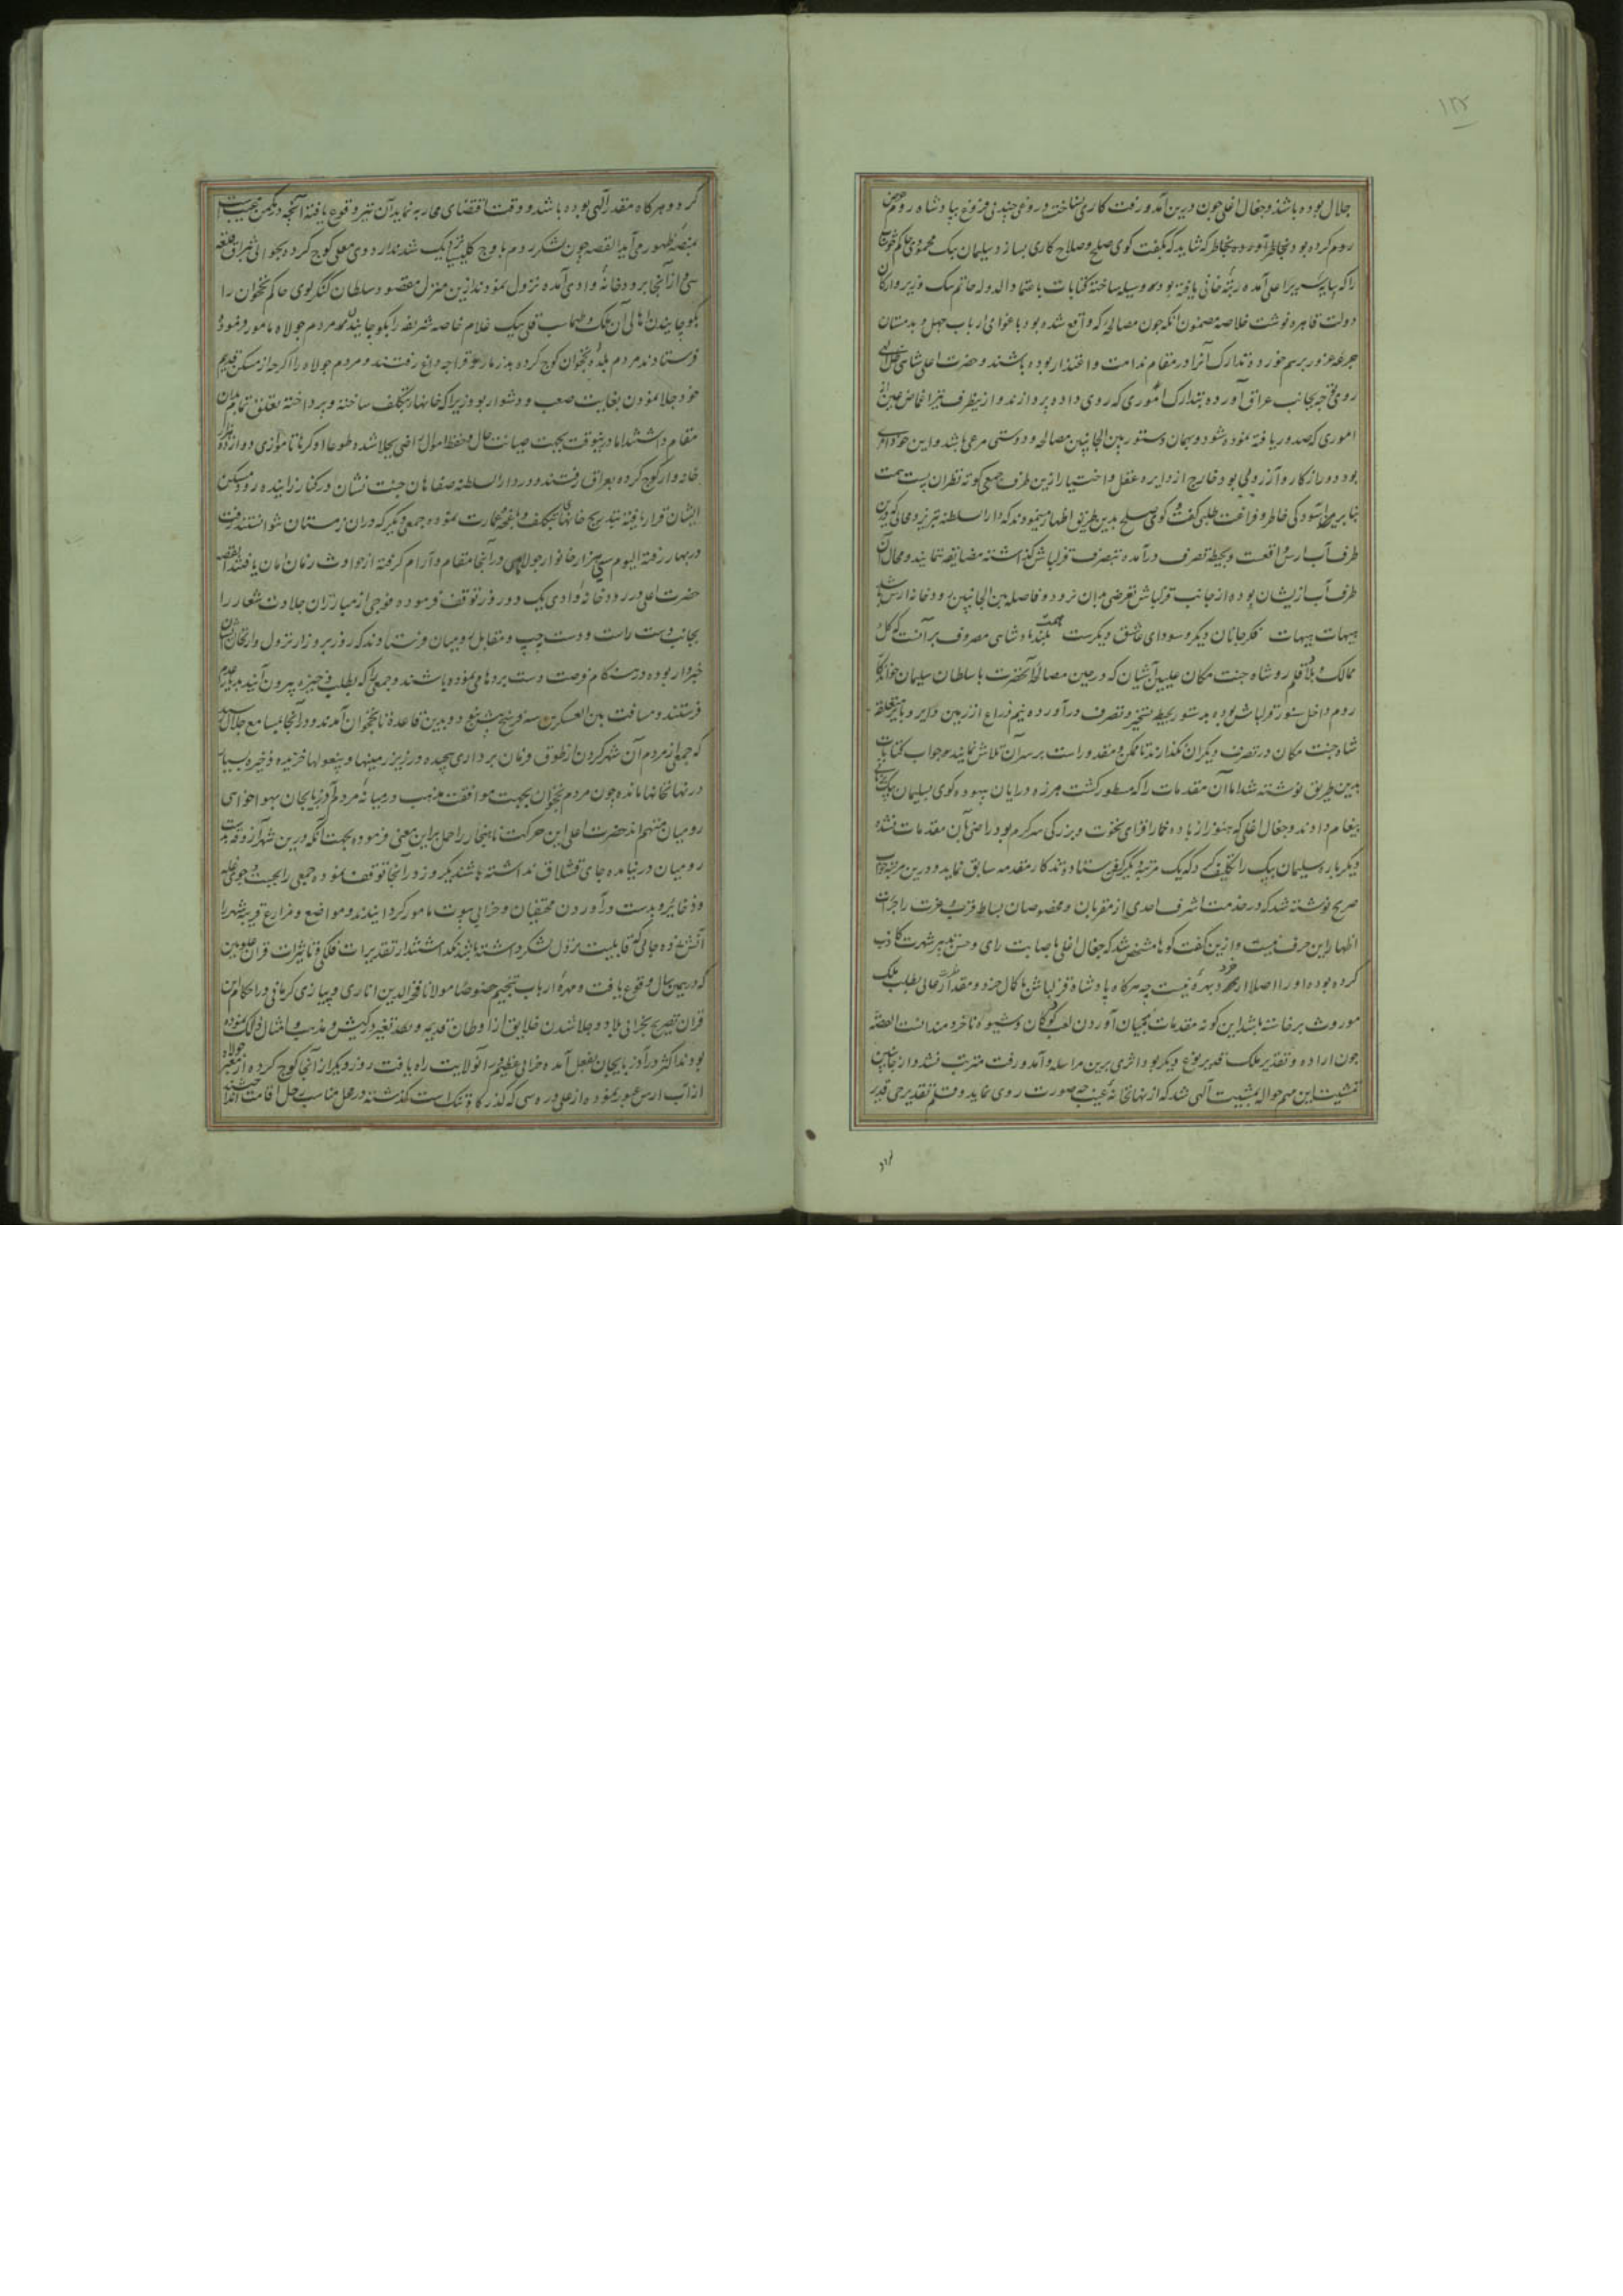 ۱۲۲
جلال بوده باشد و جغال اغلی چون درین آمد و رفت کاری نساخت و دروغی چند بی فروغ بپادشاه روم عرض
روم کرده بود بخاطر آورده بخاطر گه شاید که بگفت کوی صلح و صلاح کاری بسازد سلیمان بیک محمودی حاکم خوی
را که بپایه سریر اعلی آمده رتبه خانی یافته بود وسیله ساخته کتابات باعتماد الدوله حاتم بیک وزیر و ارکان
دولت قاهره نوشت خلاصه مضمون آنکه چون مصالحه که واقع شده بود باغوای ارباب جهل و بدمستان
جرعه غرور برسم خورده تدارک آنرا در مقام ندامت و اعتذار بوده باشند و حضرت اعلی شاهی ظل الهی
روی توجه بجانب عراق آورده بتدارک اموری که روی داده پردازند و ازینطرف نیز اغماض عین از
اموری که صدور یافته نموده شود و بهمان دستور بین الجانبین مصالحه و دوستی مرعی باشد و این
بود دور از کار و آرزوئی بود خارج از دایره عقل و اختیار ازین طرف جمعی کوته نظران پست همت
بنا بر آسودگی خاطر و فراغت طلبی گفت و کوی صلح بدین طریق اظهار مینمودند که دار السلطنه تبریز و محالی که درین
طرف آب ارس واقعست و بحیطه تصرف درآمده بتصرف قزلباش گذاشته مضایقه ننمایند و محال آن
طرف آب ازیشان بوده از جانب قزلباش تعرضی بدان نرود و فاصله بین الجانبین رودخانه ارس باشد
هیهات هیهات فکر جانان دیگر و سودای عاشق دیگرست همت بلند پادشاهی مصروف بر آنست که کل
ممالک و بلاد قلمرو شاه جنت مکان علیین آشیان که در حین مصالحه آنحضرت با سلطان سلیمان خواندگار
روم داخل سنور قزلباش بوده بدستور بحیطه تسخیر و تصرف درآورده نیم ذراع از زمین دایر و بایر متعلقه
شاه جنت مکان در تصرف دیگران نگذارند تا ممکن و مقدور است بر سر آن تلاش نمایند جواب کتابات
بدین طریق نوشته شد اما آن مقدمات را که مسطور گشت هرزه درایان بیهوده کوی بسلیمان بیک
پیغام دادند و جغال اغلی که هنوز از باده خمار افزای نخوت و بزرگی سرگرم بود راضی بآن مقدمات نشده
دیگرباره سلیمان بیک را تکلیف کرد که یک مرتبه دیگر کس فرستاده تذکار مقدمه سابق نماید و درین مرتبه جواب
صریح نوشته شد که در خدمت اشرف احدی از مقربان و مخصوصان بساط قرب و عزت را جرأت
اظهار این حرف نیست و ازین گفت کوها مشخص شد که جغال اغلی باصابت رای و حسن تدبیر شهرت کاذب
کرده بوده او را اصلا از خرد بهره نیست چه هرگاه پادشاه قزلباش با کمال جند و مقدار از جائی بطلب ملک
موروث برخاسته باشد این گونه مقدمات بمیان آوردن لعب کودکان و شیوه ناخردمندانست القصه
چون اراده و تقدیر ملک قدیر بنوع دیگر بود اثری برین مراسله و آمد و رفت مترتب نشد و از جانبین
تمشیت این مهم حواله بمشیت الهی شد که از نهانخانه غیب چه صورت روی نماید و قلم تقدیر حی قدیر
کرده و هرگاه مقدر الهی بوده باشد و وقت اقتضای محاربه نماید آن نیز وقوع یافته آنچه در مکمن غیبست
بمنصه ظهور می آید القصه چون لشکر روم باوج کلیسیا نزدیک شدند اردوی معلی کوچ کرده
از آنجا برودخانه وادی آمده نزول نمودند ازین منزل مقصود سلطان کنگرلوی حاکم نخجوان را
بکوچانیدن اهالی آن ملک و طهماسب قلی بیک غلام خاصه شریفه را بکوچانیدن مردم جولاه مامور فرموده
فرستادند مردم بلده نخجوان کوچ کرده بدزمار و قراجه داغ رفتند و مردم جولاه را اگرچه از مسکن قدیم
خود جلا نمودن بغایت صعب و دشوار بود زیرا که خانهای بتکلف ساخته و پرداخته تعلق تمام بدان
مقام داشتند اما درینوقت بجهت صیانت حال و حفظ اموال راضی بجلا شده طوعا او کرها تا موازی دو از ده هزار
خانه وار کوچ کرده بعراق رفتند و در دار السلطنه صفاهان جنت نشان در کنار زاینده رود مسکن
ایشان قرار یافته بتدریج خانهای بتکلف و باغچه عمارت نموده جمعی دیگر که در آن زمستان نتوانستند رفت
در بهار رفته الیوم سه هزار خانوار جولاهی در آنجا مقام و آرام گرفته از حوادث زمان امان یافتند القصه
حضرت اعلی در رودخانه وادی یک دو روز توقف فرموده فوجی از مبارزان جلادت شعار را
بجانب دست راست و دست چپ و مقابل رومیان فرستادند که روز بروز از نزول و ارتحال ایشان
خبردار بوده در هنگام فرصت دست بردها می نموده باشند و جمعی را که بطلب ذخیره بیرون آیند
فرستند و مسافت بین العسکرین سه فرسخ پنج فرسخ بود و بدین قاعده تا نخجوان آمدند و در آنجا بمسامع جلال رسید
که جمعی از مردم آن شهر گردن از طوق فرمان برداری پیچیده در زیر زمینها و پیغولها خزیده ذخیره بسیار
در نهانخانها مانده چون مردم نخجوان بجهت موافقت مذهب در میانه مردم آذربایجان بهواخواهی
رومیان متهم اند حضرت اعلی این حرکت ناهنجار را حمل بر این معنی فرموده بجهت آنکه درین شهر آذوقه بدست
رومیان درنیامده جای قشلاق نداشته باشند یکروز در آنجا توقف نموده جمعی را بجهت جوی غله
و ذخایر و بدست درآوردن مختفیان و خرابی بیوت مامور گردانیدند و مواضع و مزارع قریبه شهر را
آتش زده جائی که قابلیت نزول لشکر داشته باشد نگذاشتند از تقدیرات فلکی و تاثیرات قران علویین
که در همین سال وقوع یافت و مهره ارباب تنجیم خصوصا مولانا فخر الدین اناری و پیازی کرمانی در احکام این
قران تصریح بخرابی بلاد و جلا شدن خلایق از اوطان قدیمه و تغیر کیش و مذهب و امثال ذلک نموده
بودند اکثر در آذربایجان بفعل آمده خرابی عظیم در آنولایت راه یافت روز دیگر از آنجا کوچ کرده از معبر جولاه
از آب ارس عبور نموده از علی دره سی که گذرگاه تنگ است گذشته در محل مناسب رحل اقامت انداختند